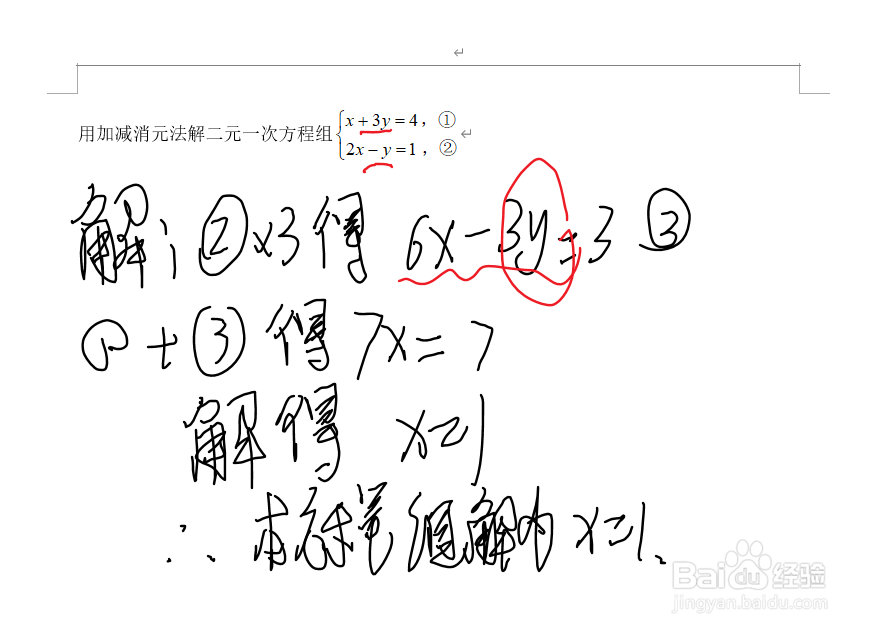 用加减消元法解二元一次方程组{x+3y=4，①
2x-y=1，②
解：②×3得 6x-3y=3 ③
①+③得7x=7
解得 x=1
∴ 本方程组解为x=1、
Baidu经验
jingyan.baidu.com